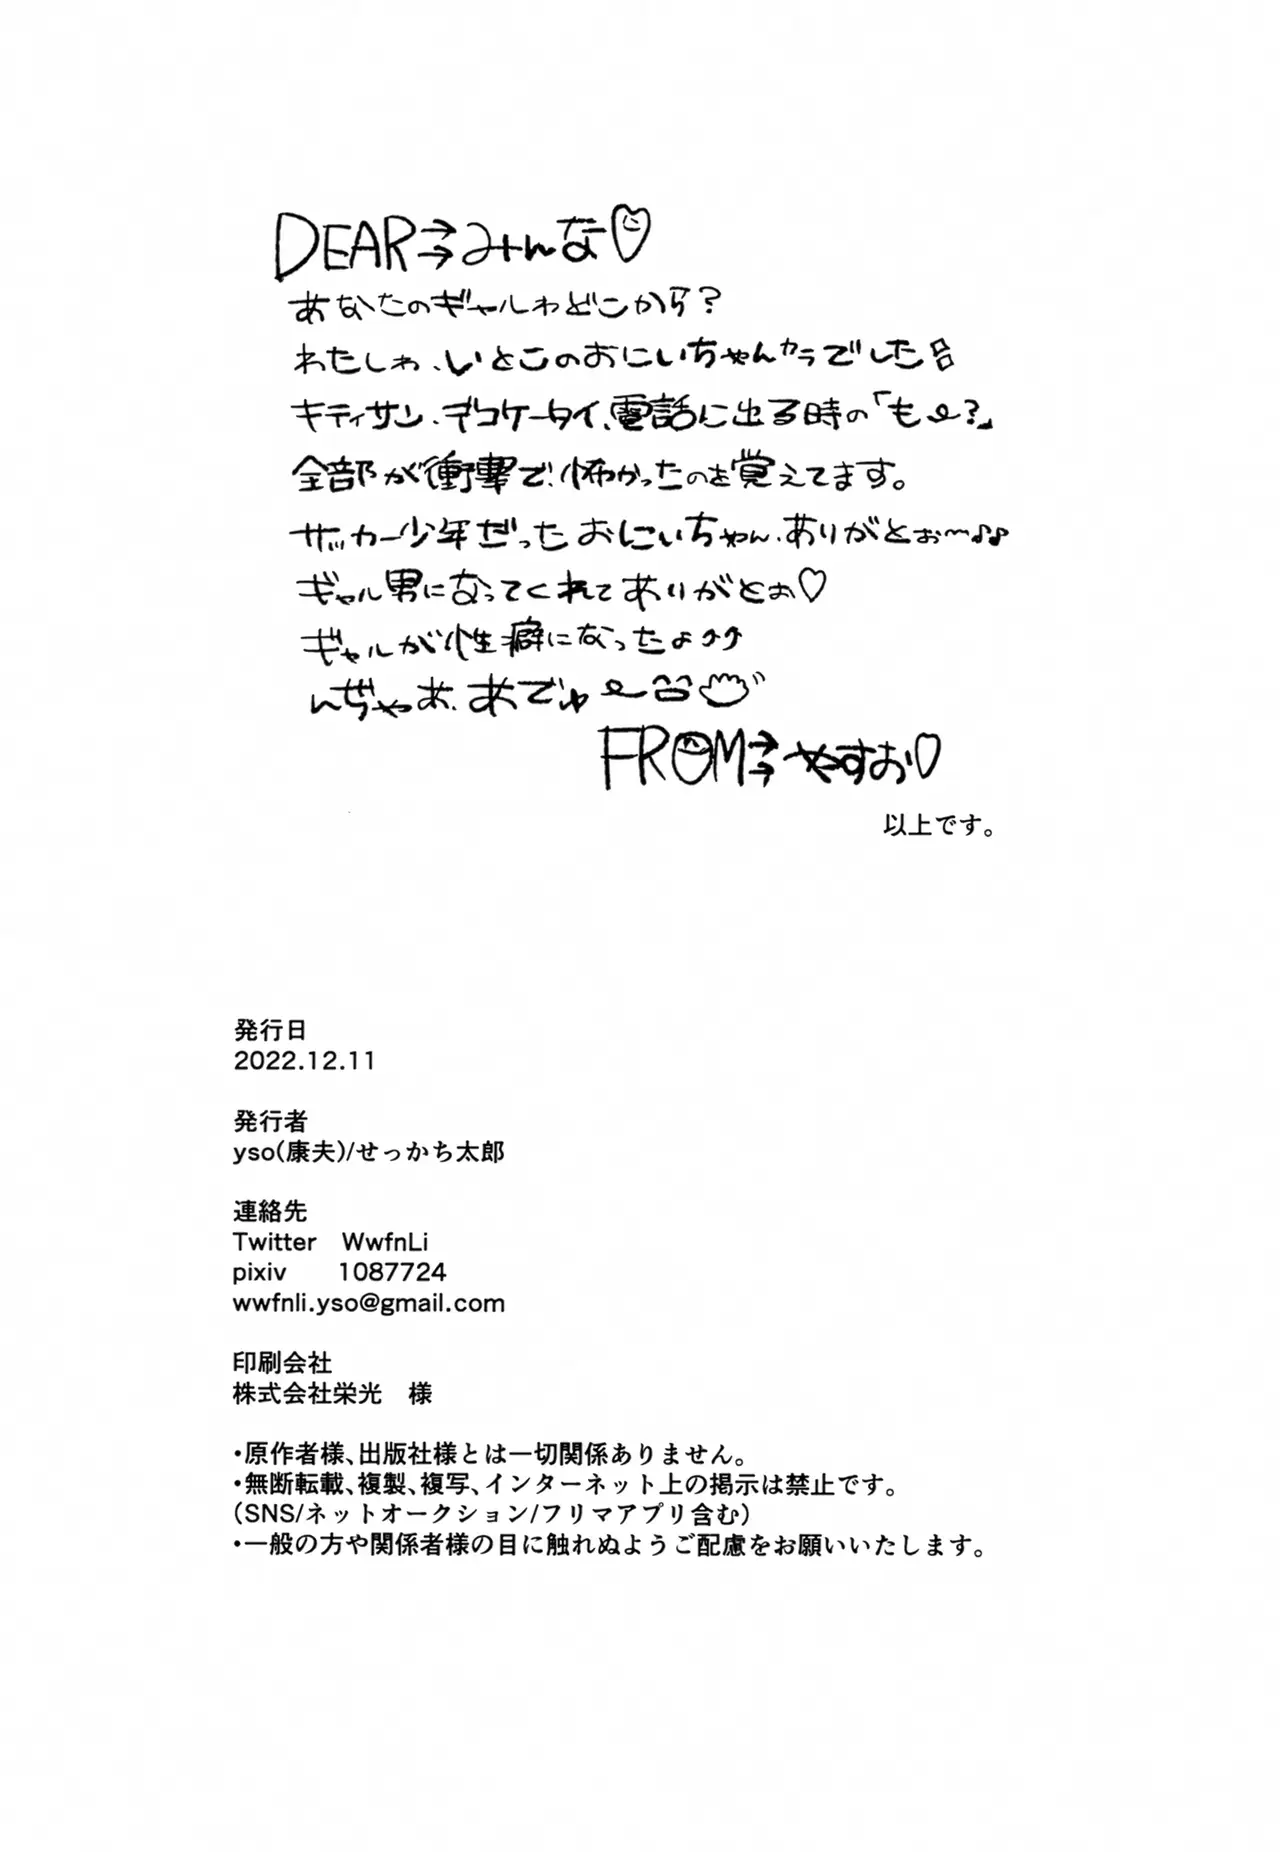 DEAR→→みんな♡
あなたのギャルわどこから?
わたしゎ、いとこのおにいちゃんカラでした
キティサン、デコケータイ、電話に出る時の「もー?」
全部が衝撃で、怖かったのを覚えてます。
サッカー少年だったおにいちゃん、ありがとぉ〜♪♪
ギャル男になってくれてありがとぉ♡
ギャルが性癖になったょ♪♪
んぢゃあ、あでゅー
FROM→→やすお♡
以上です。
発行日
2022.12.11
発行者
yso(康夫)/せっかち太郎
連絡先
Twitter WwfnLi
pixiv 1087724
wwfnli.yso@gmail.com
印刷会社
株式会社栄光 様
・原作者様、出版社様とは一切関係ありません。
・無断転載、複製、複写、インターネット上の掲示は禁止です。
(SNS/ネットオークション/フリマアプリ含む)
・一般の方や関係者様の目に触れぬようご配慮をお願いいたします。